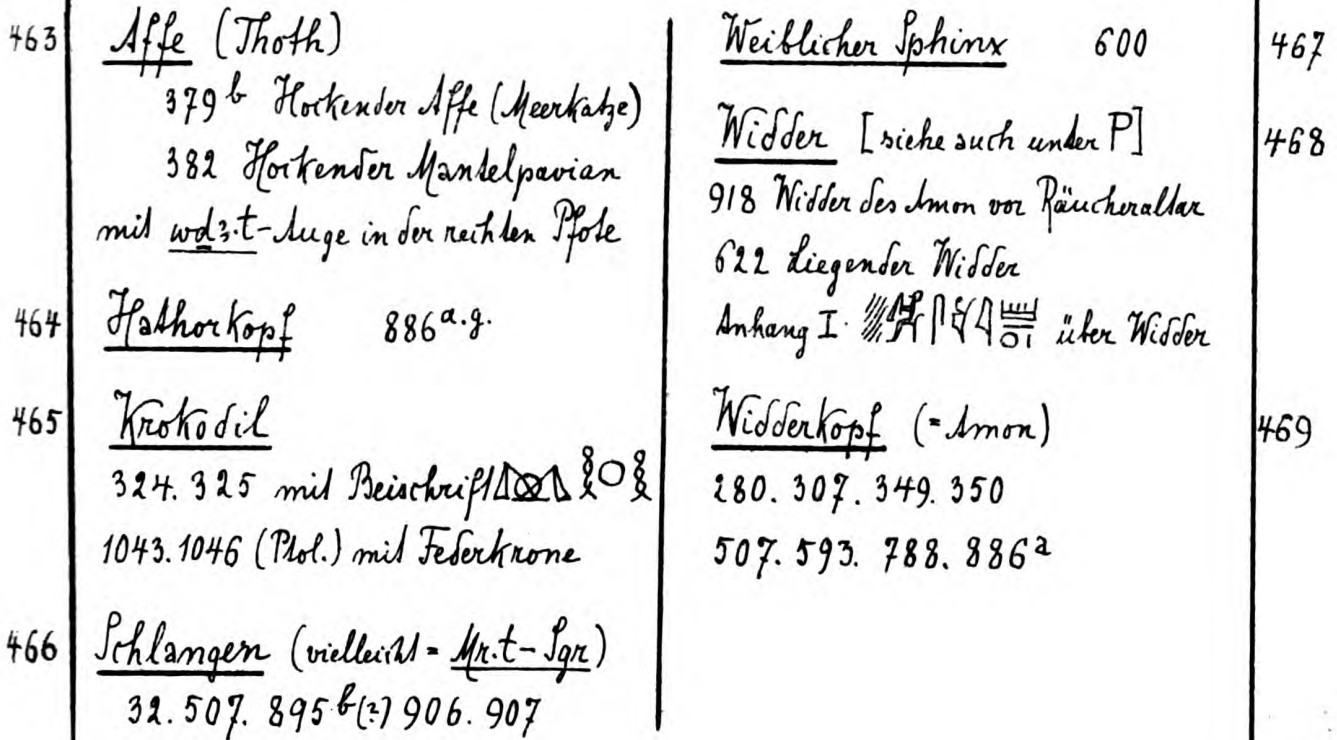 463 Affe (Thoth)
379 b Hockender Affe (Meerkatze)
382 Hockender Mantelpavian
mit wḏ3.t-Auge in der rechten Pfote
464 Hathorkopf 886 a.g.
465 Krokodil
324. 325 mit Beischrift
1043. 1046 (Ptol.) mit Federkrone
466 Schlangen (vielleicht = Mr.t-Sgr)
32. 507. 895 b (?) 906. 907
Weiblicher Sphinx 600 467
Widder [siehe auch unter P] 468
918 Widder des Amon vor Räucheraltar
622 Liegender Widder
Anhang I. über Widder
Widderkopf (= Amon) 469
280. 307. 349. 350
507. 593. 788. 886 a